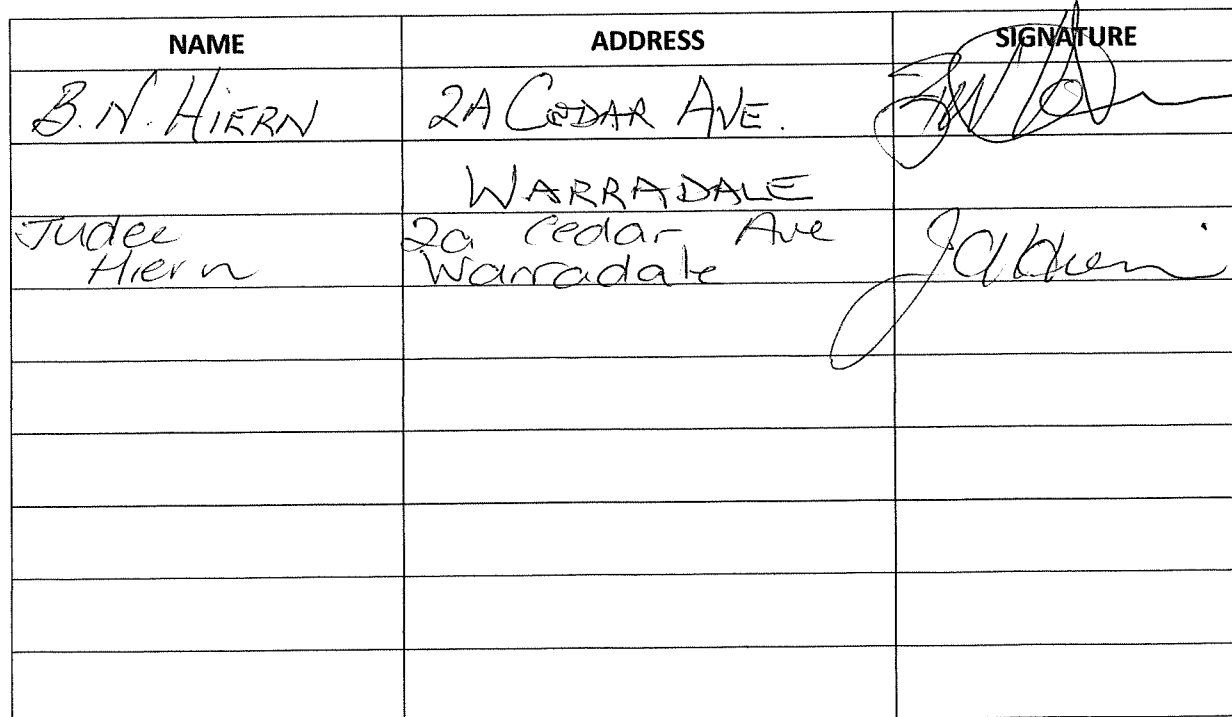 NAME ADDRESS SIGNATURE
B.N. HIERN 2A CEDAR AVE.
WARRADALE
Judee 2a Cedar Ave
Hiern Warradale